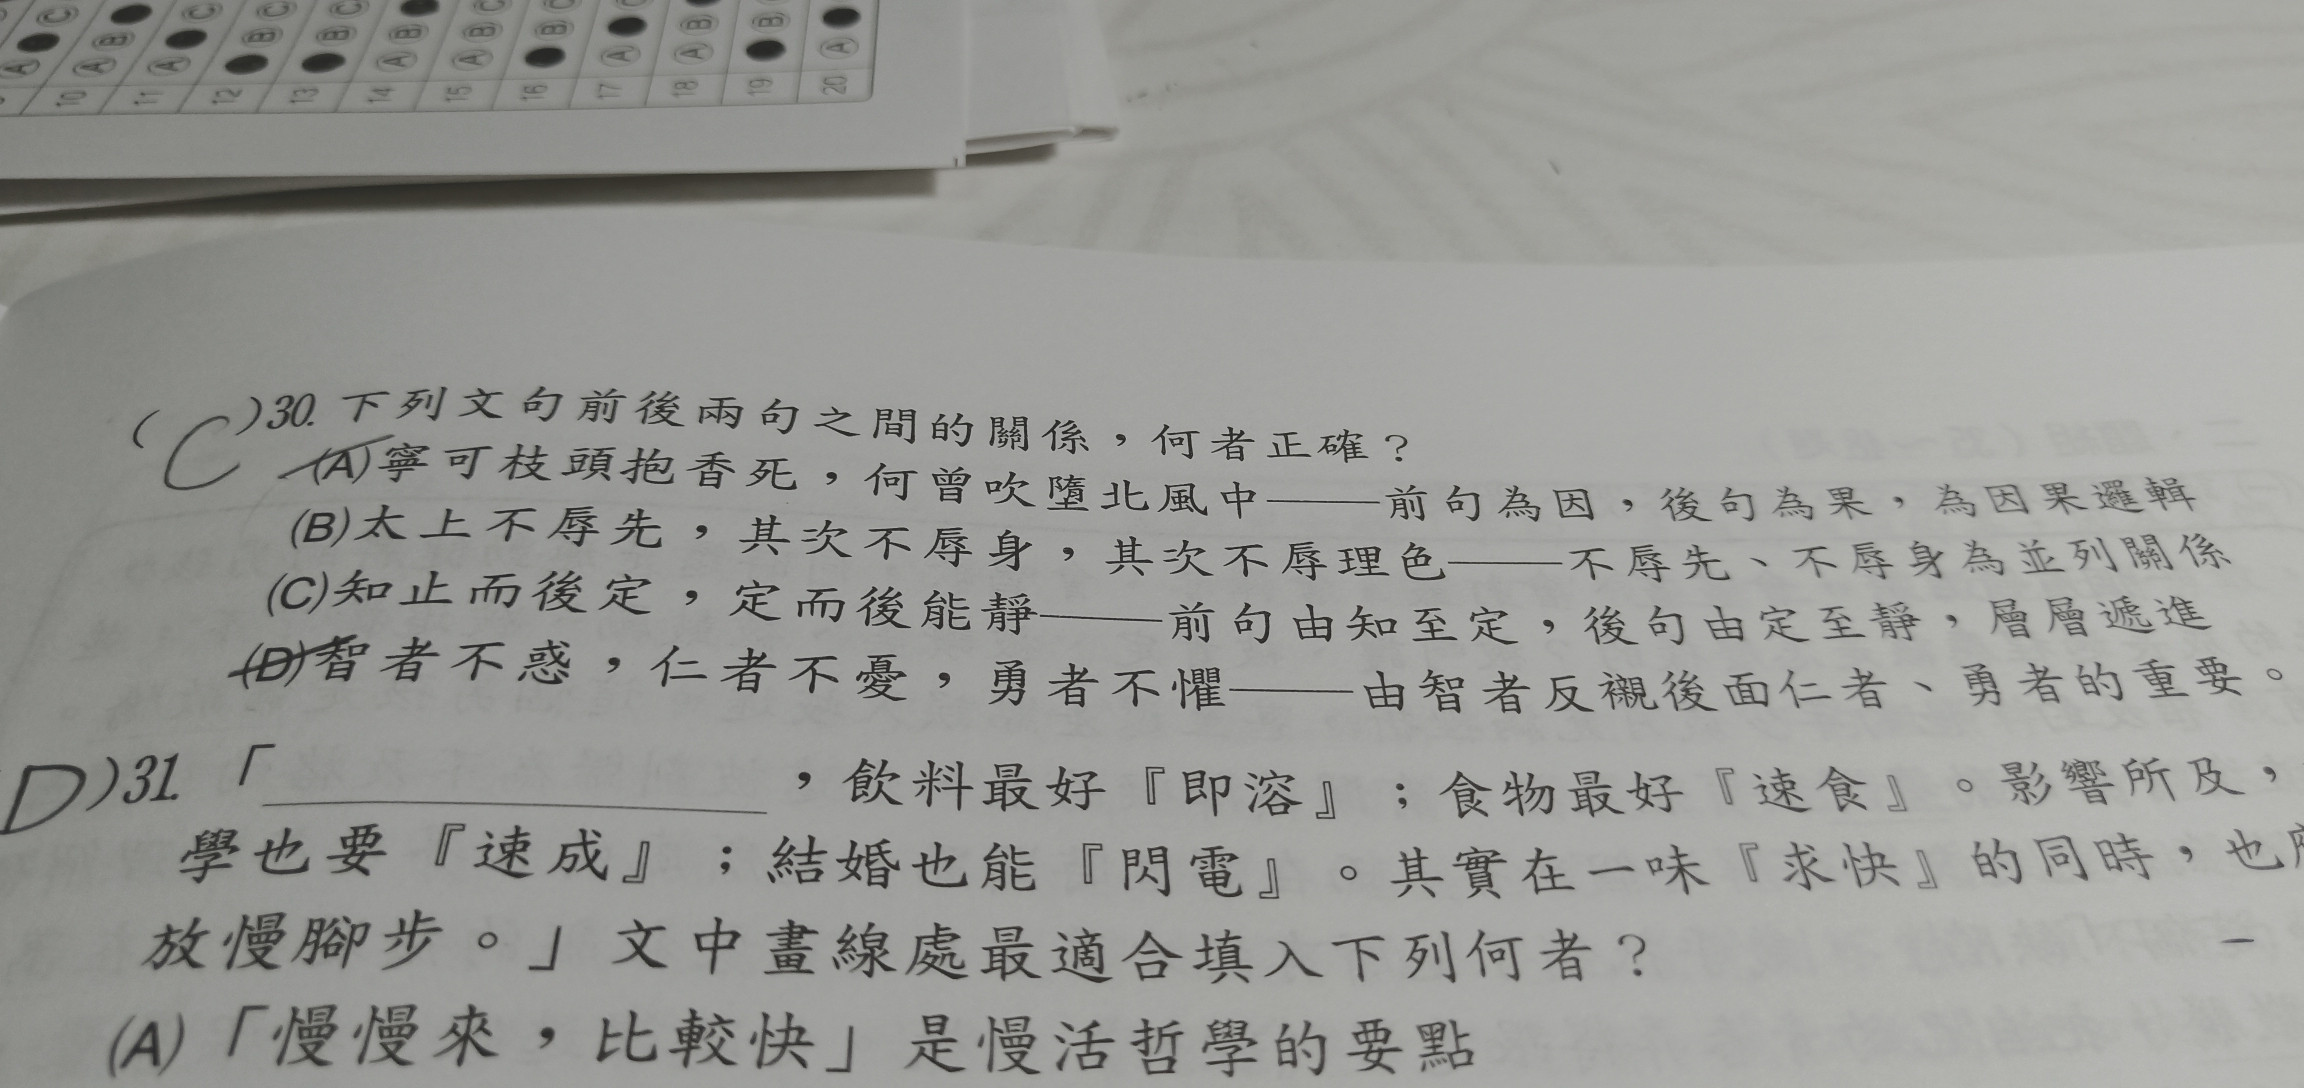 10 11 12 13 14 15 16 17 18 19 20
(C)30. 下列文句前後兩句之間的關係，何者正確？
(A)寧可枝頭抱香死，何曾吹墮北風中——前句為因，後句為果，為因果邏輯
(B)太上不辱先，其次不辱身，其次不辱理色——不辱先、不辱身為並列關係
(C)知止而後定，定而後能靜——前句由知至定，後句由定至靜，層層遞進
(D)智者不惑，仁者不憂，勇者不懼——由智者反襯後面仁者、勇者的重要。
D)31. 「＿＿＿＿＿＿，飲料最好『即溶』；食物最好『速食』。影響所及，
學也要『速成』；結婚也能『閃電』。其實在一味『求快』的同時，也
放慢腳步。」文中畫線處最適合填入下列何者？
(A)「慢慢來，比較快」是慢活哲學的要點